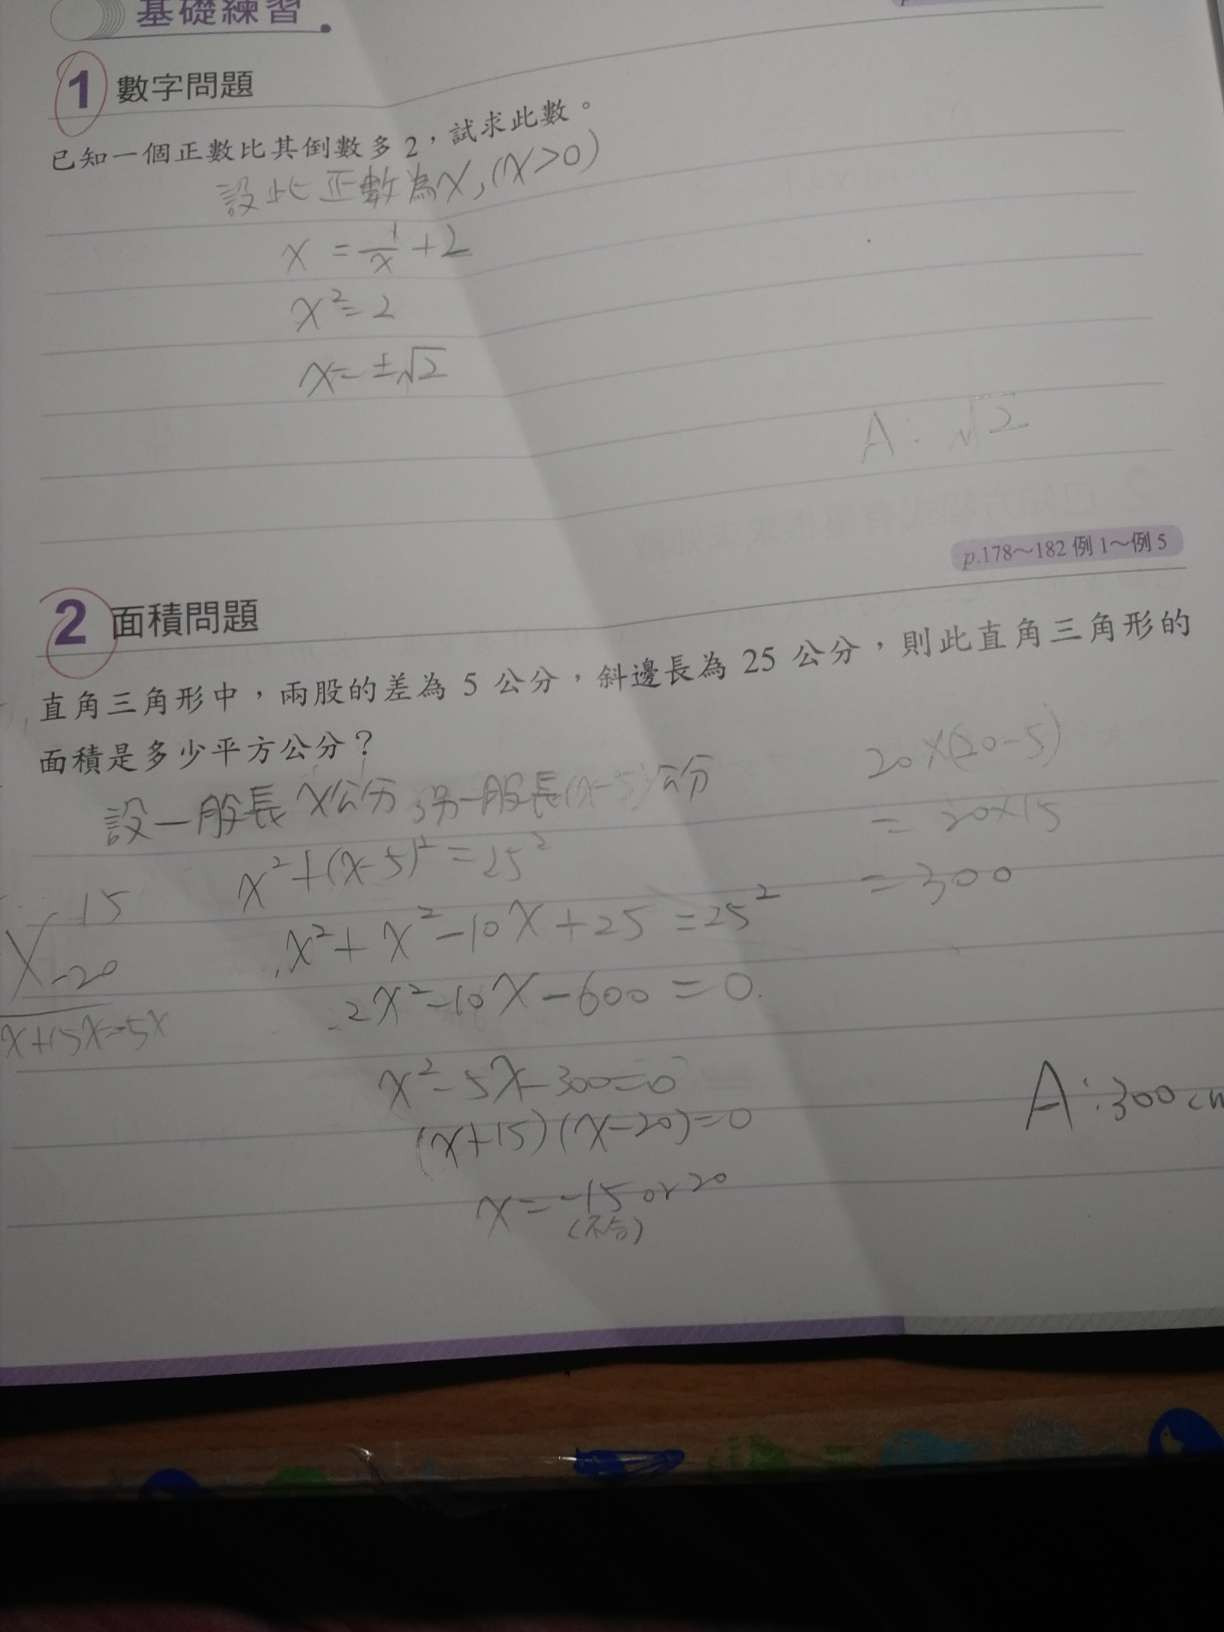 基礎練習
1 數字問題
已知一個正數比其倒數多 2，試求此數。
設此正數為x,(x>0)
x = 1/x + 2
x² = 2
x = ±√2
A: √2
p.178～182 例 1～例 5
2 面積問題
直角三角形中，兩股的差為 5 公分，斜邊長為 25 公分，則此直角三角形的
面積是多少平方公分？
設一股長x公分,另一股長(x-5)公分
x²+(x-5)²=25²
x²+x²-10x+25=25²
2x²-10x-600=0
x²-5x-300=0
(x+15)(x-20)=0
x=-15 or 20
(不合)
15
x -20
x+15x=-5x
20×(20-5)
=20×15
=300
A:300